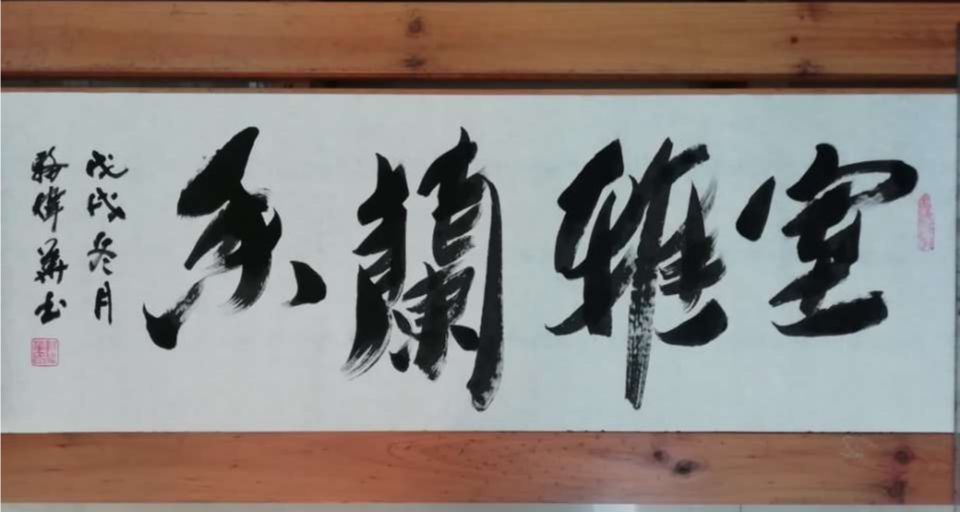 室雅蘭香
戊戌冬月
偉華書